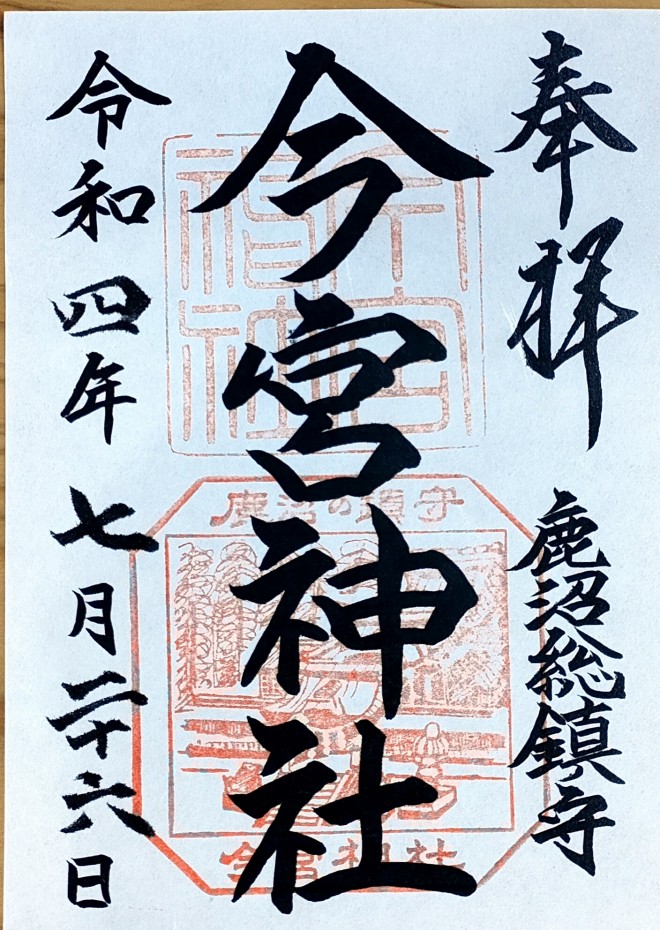 奉拝
鹿沼総鎮守
今宮神社
今宮神社
鹿沼の鎮守
今宮神社
令和四年七月二十六日